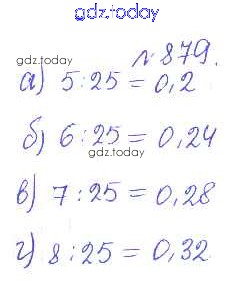 gdz.today
№879.
gdz.today
а) 5:25 = 0,2
б) 6:25 = 0,24
gdz.today
в) 7:25 = 0,28
г) 8:25 = 0,32